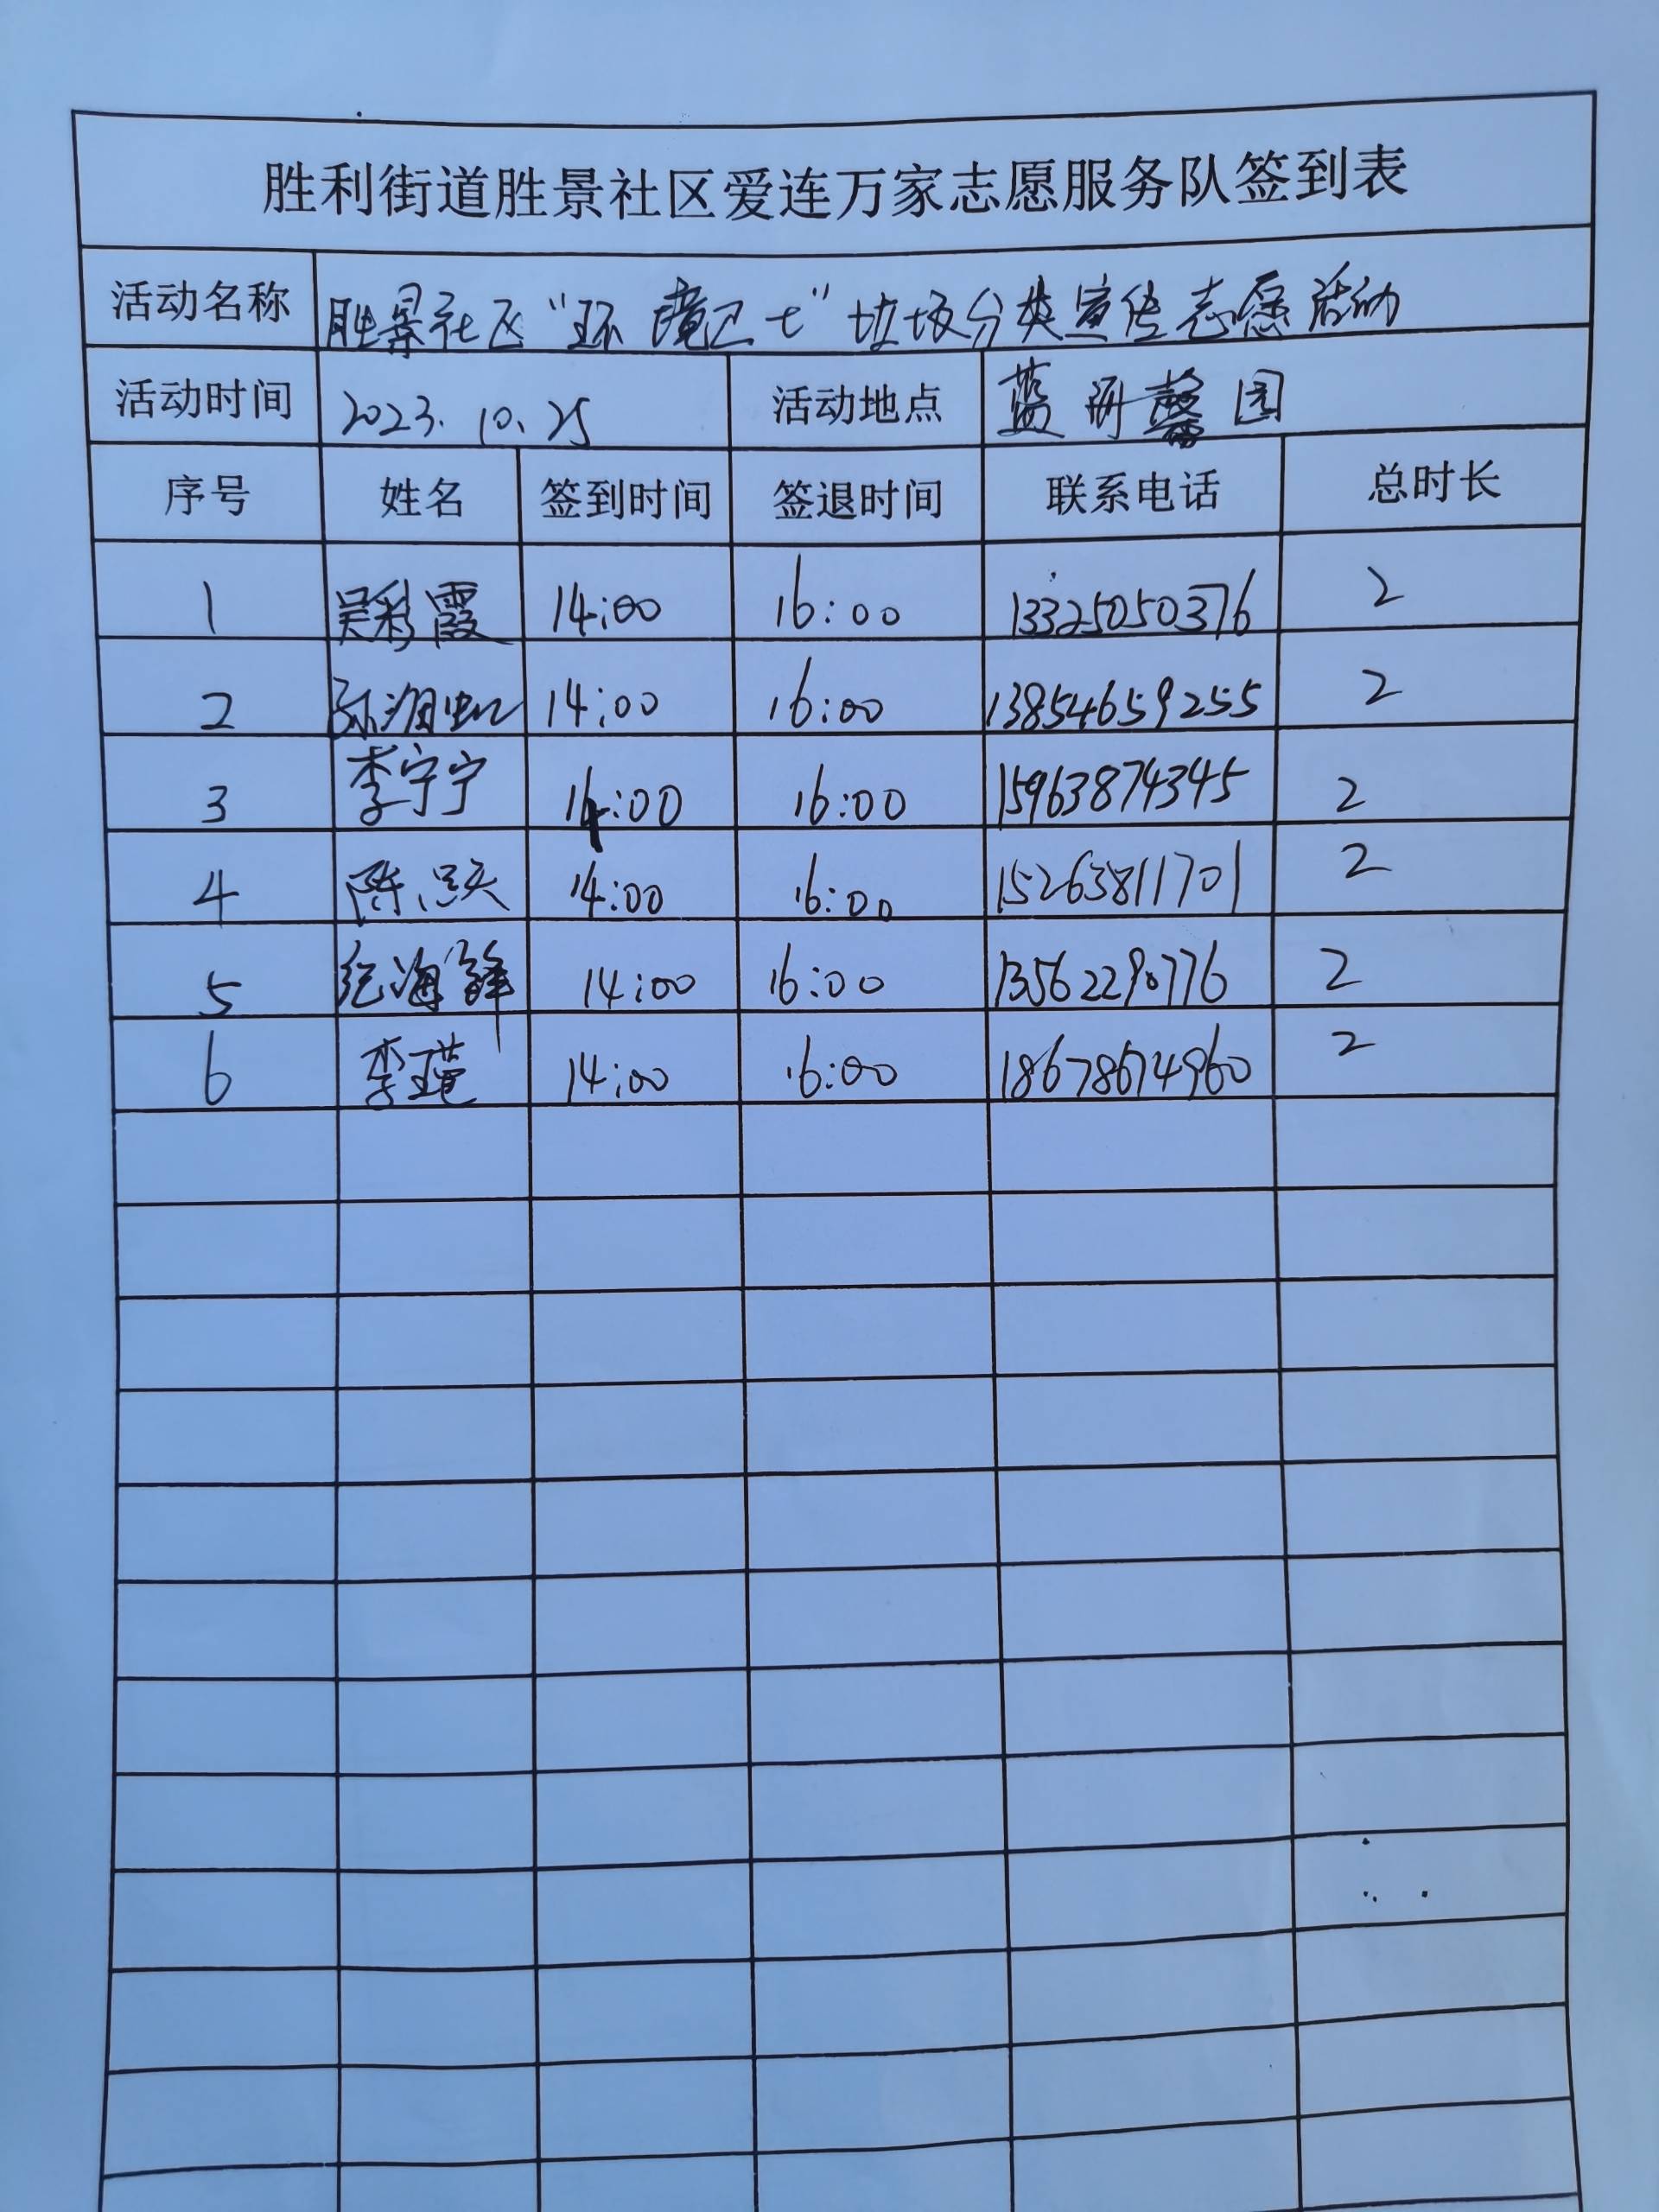 胜利街道胜景社区爱连万家志愿服务队签到表
活动名称 胜景社区“环境卫士”垃圾分类宣传志愿活动
活动时间 2023.10.25 活动地点 蓝湾馨园
序号 姓名 签到时间 签退时间 联系电话 总时长
1 吴彩霞 14:00 16:00 13325050376 2
2 14:00 16:00 13854659255 2
3 李宁宁 14:00 16:00 15963874345 2
4 陈 14:00 16:00 15263811701 2
5 纪海锋 14:00 16:00 13562290776 2
6 李瑾 14:00 16:00 18678674960 2